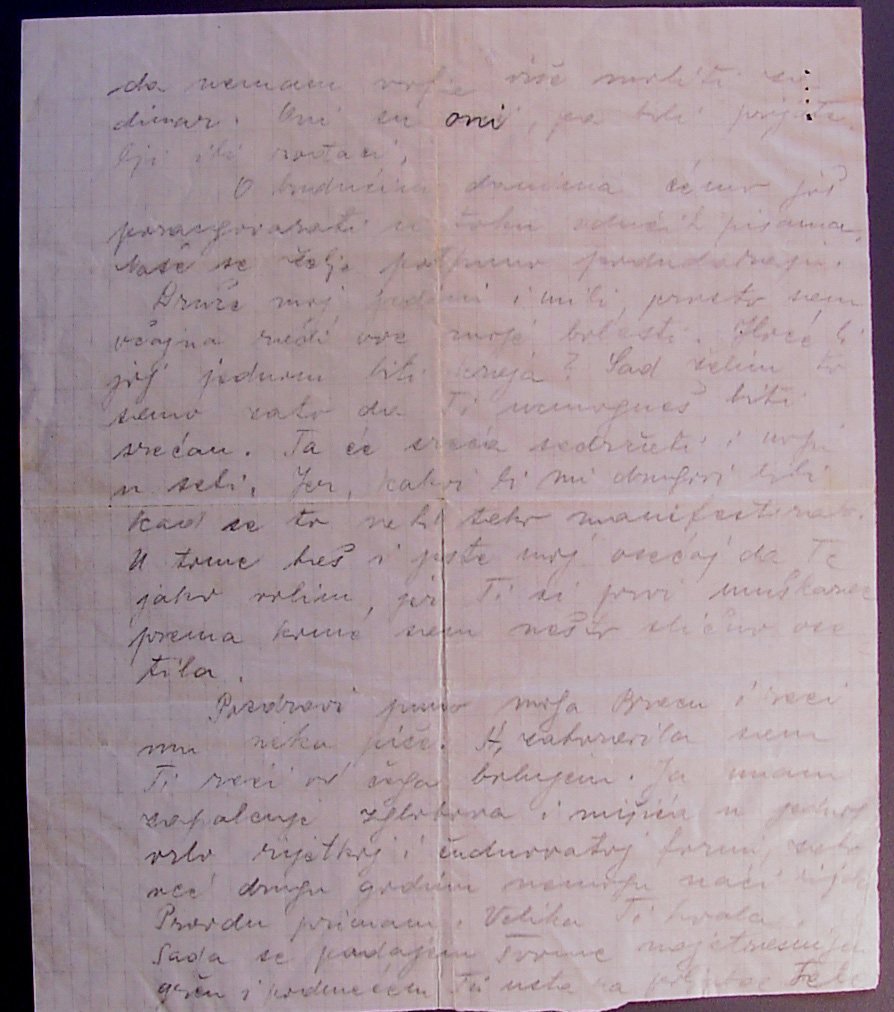 da nemam volje više moliti za
dinar. Oni su oni, pa bili prijate
lji ili rođaci.
O budućim danima ćemo još
porazgovarati u toku idućih pisama.
Naše se želje potpuno podudaraju.
Druže moj jedini i mili, prosto sam
očajna radi ove moje bolesti. Hoće li
joj jednom biti kraja? Sad želim to
samo zato da Ti uzmogneš biti
srećan. Ta će sreća sadržati i moju
u sebi. Jer, kakvi bi mi drugovi bili
kad se to ne bi tako manifestiralo.
U tome leži i jeste moj osećaj da Te
jako volim, jer Ti si prvi muškarac
prema kome sam nešto slično ose
tila.
Pozdravi puno moga Bracu i reci
mu neka piše. A, zaboravila sam
Ti reći od čega bolujem. Ja imam
zapalenje zglobova i mišića u jednoj
vrlo rijetkoj i čudnovatoj formi, zato
već drugu godinu nemogu naći lijek
Pravdu primam. Velika Ti hvala.
Sada se podajem Tvome
i podmećem Ti usta na